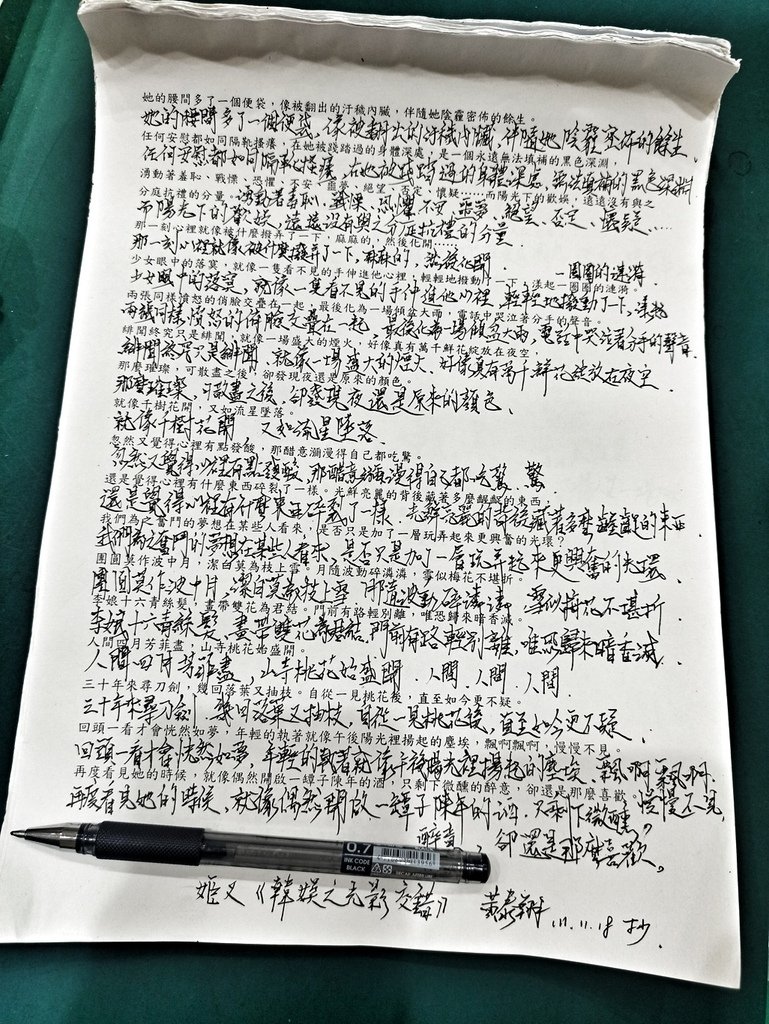 她的腰間多了一個便袋，像被翻出的汙穢內臟，伴隨她陰霾密佈的餘生。
她的腰間多了一個便袋，像被翻出的汙穢內臟，伴隨她陰霾密佈的餘生.
任何安慰都如同隔靴搔癢，在她被踐踏過的身體深處，是一個永遠無法填補的黑色深淵，
任何安慰都如同隔靴搔癢，在她被踐踏過的身體深處，無法填補的黑色深淵
湧動著羞恥、戰慄、恐懼、不安、噩夢、絕望、否定、懷疑……而陽光下的歡娛，遠遠沒有與之
湧動著羞恥、戰慄、恐懼、不安、噩夢、絕望、否定、懷疑……
分庭抗禮的分量。
而陽光下的歡娛，遠遠沒有與之分庭抗禮的分量
那一刻心裡就像被什麼撥弄了一下，麻麻的，然後化開……
那一刻心裡就像被什麼撥弄了一下，麻麻的，然後化開
一圈圈的漣漪
少女眼中的落寞，就像一隻看不見的手伸進他心裡，輕輕地撥動了一下，漾起一圈圈的漣漪。
少女眼中的落寞，就像一隻看不見的手伸進他心裡，輕輕地撥動了一下，漾起
兩張同樣憤怒的俏臉交疊在一起，最後化為一場傾盆大雨，電話中哭泣著分手的聲音。
兩張同樣憤怒的俏臉交疊在一起，最後化為一場傾盆大雨，電話中哭泣著分手的聲音.
緋聞終究只是緋聞，就像一場盛大的煙火，好像真有萬千鮮花綻放在夜空，
緋聞終究只是緋聞，就像一場盛大的煙火，好像真有萬千鮮花綻放在夜空
那麼璀璨，可散盡之後，卻發現夜還是原來的顏色。
那麼璀璨，可散盡之後，卻發現夜還是原來的顏色、
就像千樹花開，又如流星墜落。
就像千樹花開 又如流星墜落
忽然又覺得心裡有點發酸，那醋意瀰漫得自己都吃驚。
忽然又覺得心裡有點發酸，那醋意瀰漫得自己都吃驚、驚
還是覺得心裡有什麼東西碎裂了一樣。光鮮亮麗的背後藏著多麼齷齪的東西，
還是覺得心裡有什麼東西碎裂了一樣。光鮮亮麗的背後藏著多麼齷齪的東西
我們為之奮鬥的夢想在某些人看來，是否只是加了一層玩弄起來更興奮的光環？
我們為之奮鬥的夢想在某些人看來，是否只是加了一層玩弄起來更興奮的光環、
團圓莫作波中月，潔白莫為枝上雪。月隨波動碎潾潾，雪似梅花不堪折。
團圓莫作波中月，潔白莫為枝上雪 月隨波動碎潾潾，雪似梅花不堪折
李娘十六青絲髮，畫帶雙花為君結。門前有路輕別離，唯恐歸來暗香滅。
李娘十六青絲髮、畫帶雙花為君結、門前有路輕別離，唯恐歸來暗香滅.
人間四月芳菲盡，山寺桃花始盛開。
人間四月芳菲盡，山寺桃花始盛開.人間.人間.人間
三十年來尋刀劍，幾回落葉又抽枝。自從一見桃花後，直至如今更不疑。
三十年來尋刀劍.幾回落葉又抽枝，自從一見桃花後，直至如今更不疑.
回頭一看才會恍然如夢，年輕的執著就像午後陽光裡揚起的塵埃，飄啊飄啊，慢慢不見。
回頭一看才會恍然如夢，年輕的執著就像午後陽光裡揚起的塵埃，飄啊飄啊.
再度看見她的時候，就像偶然開啟一罈子陳年的酒，只剩下微醺的醉意，卻還是那麼喜歡。
慢慢不見，
再度看見她的時候，就像偶然開啟一罈子陳年的酒.只剩下微醺的
醉意，卻還是那麼喜歡。
0.7
INK CODE
BLACK
姬叉《韓娛之光影交錯》 黃泰翔 111.11.18 抄.